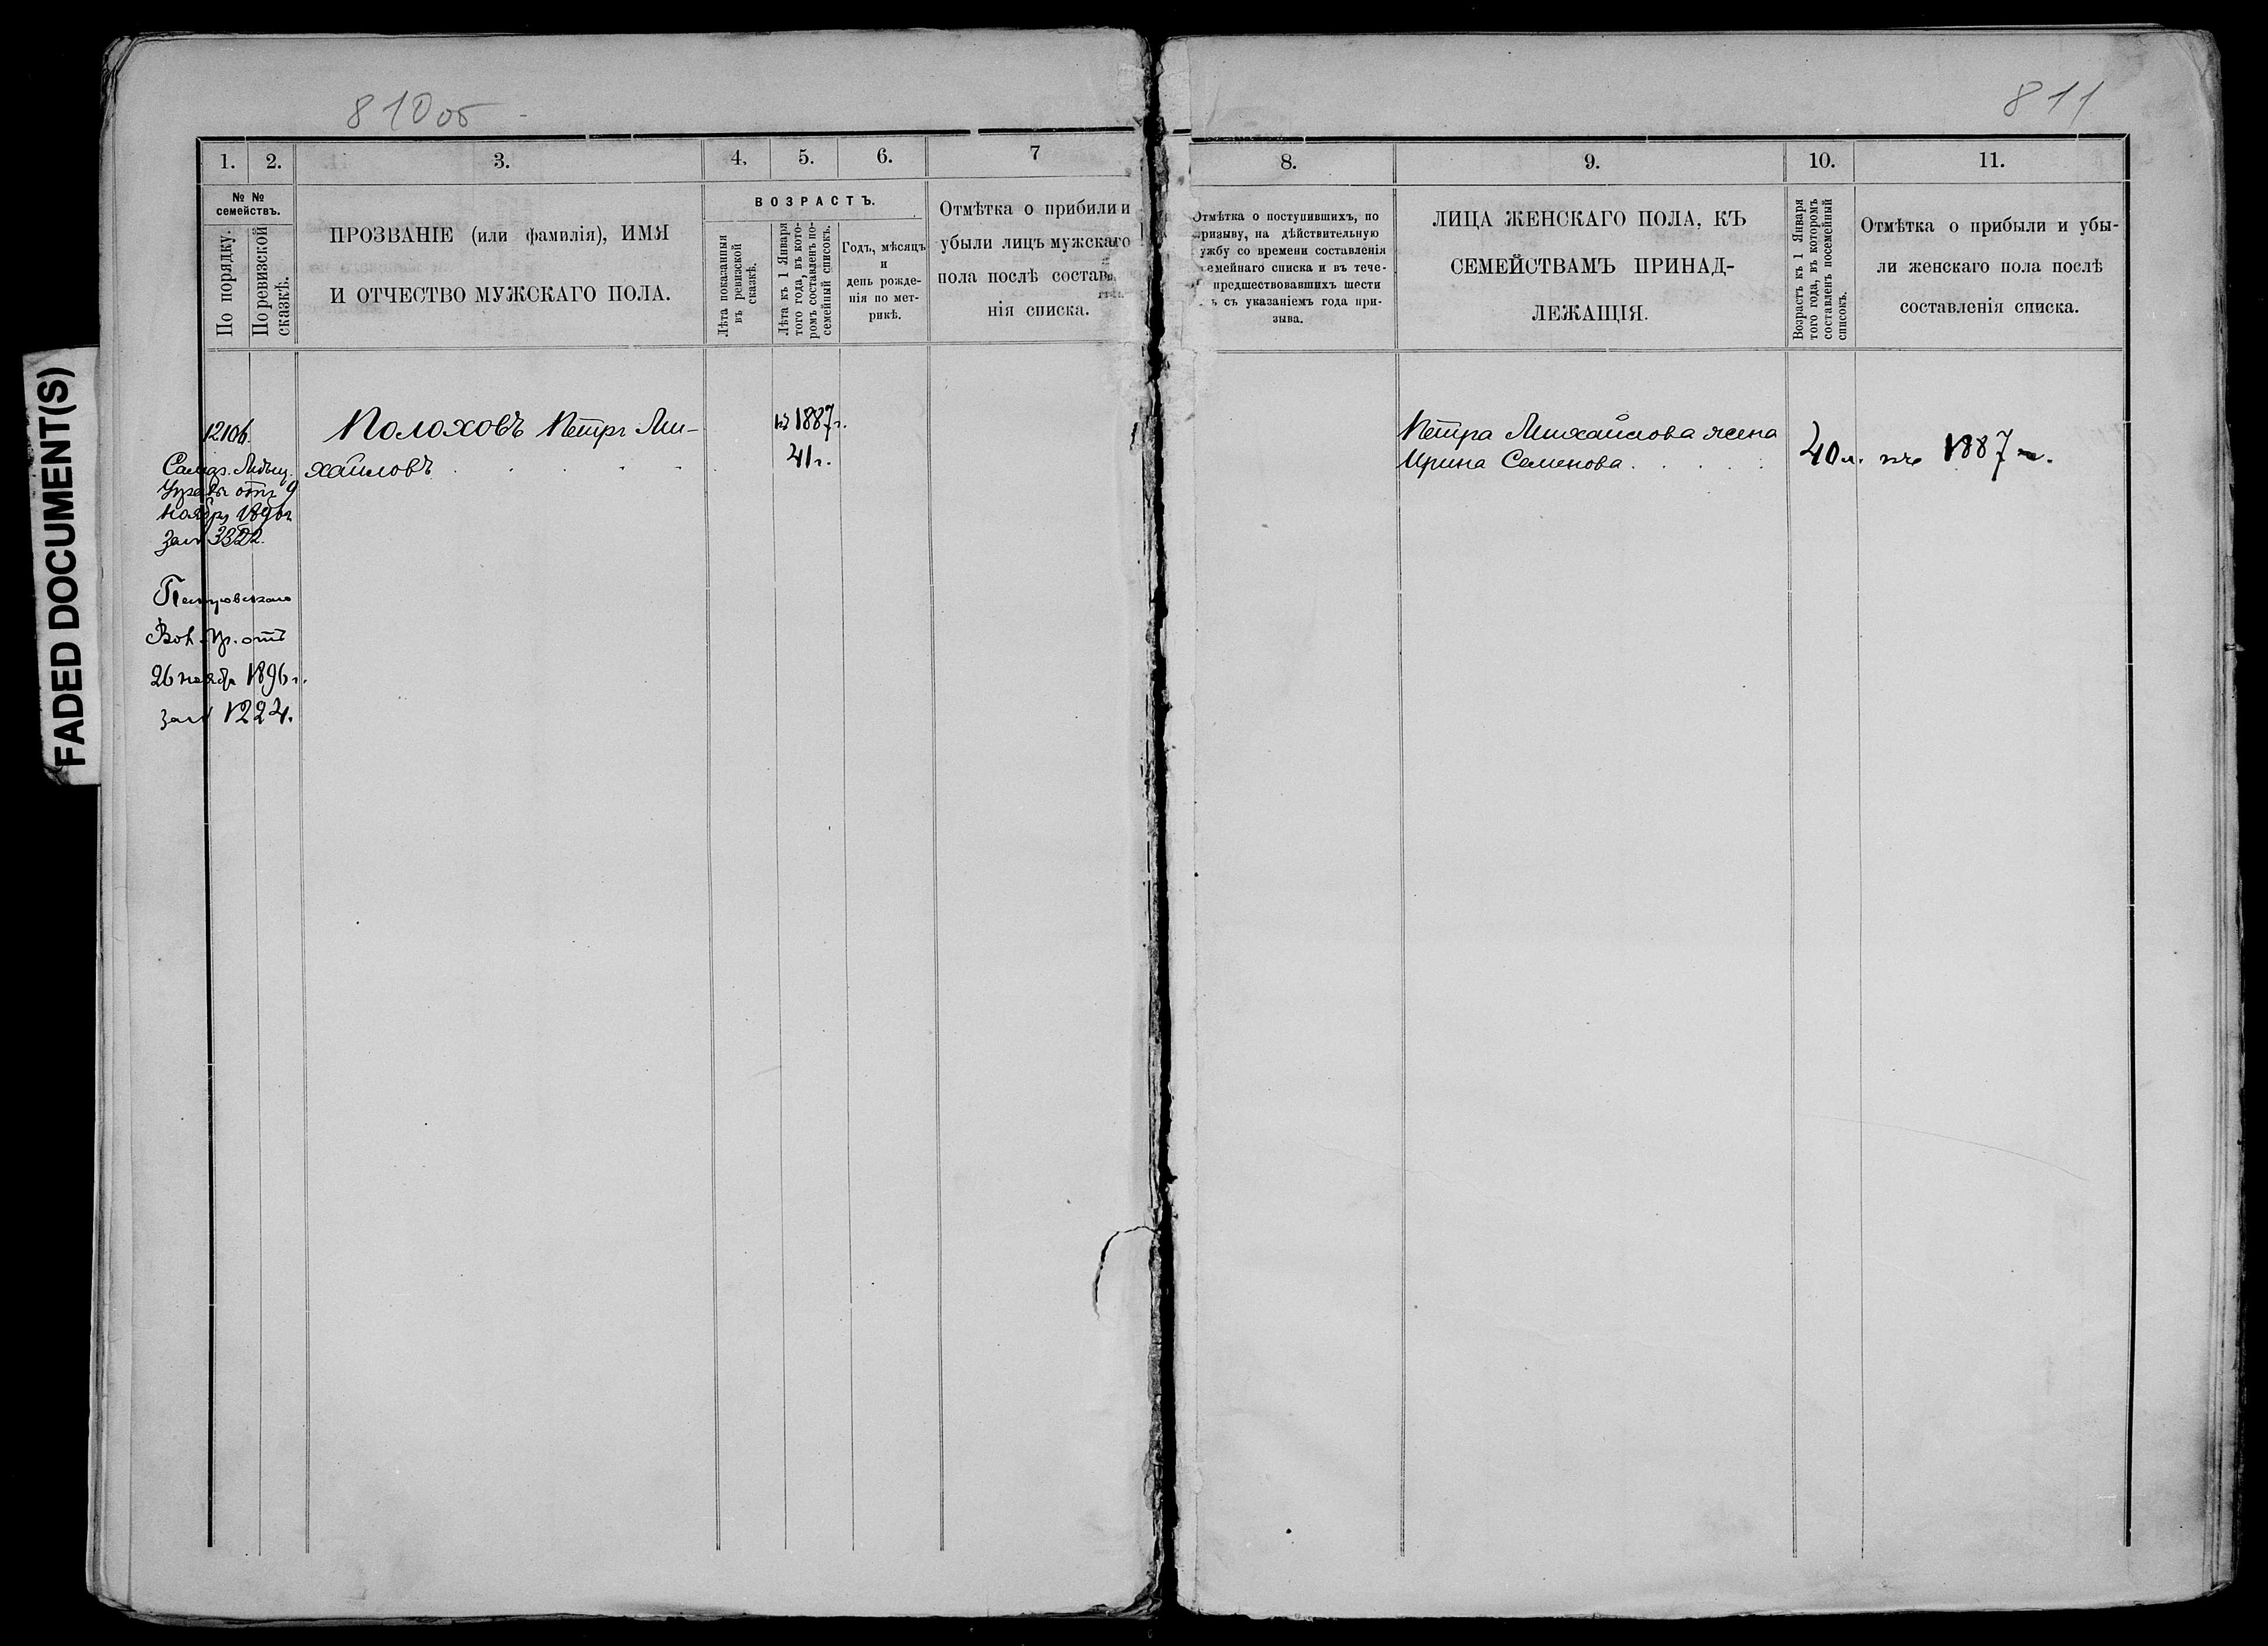 810об
811
FADED DOCUMENT(S)
1.
2.
3.
4.
5.
6.
7
№ №
семействъ.
По порядку.
По ревизской
сказкѣ.
ПРОЗВАНІЕ (или фамилія), ИМЯ
И ОТЧЕСТВО МУЖСКАГО ПОЛА.
ВОЗРАСТЪ.
Лѣта показанныя
въ ревизской
сказкѣ.
Лѣта къ 1 Января
того года, въ кото-
ромъ составленъ по-
семейный списокъ.
Годъ, мѣсяцъ
и
день рожде-
нія по мет-
рикѣ.
Отмѣтка о прибыли и
убыли лицъ мужскаго
пола послѣ состав
нія списка.
12106
Полоховъ Петръ Ми-
хайловъ
къ 1887 г.
41 г.
Самар.
отъ 9
ноября 1896 г.
за № 3322.
Вол. Пр. отъ
26 ноября 1896 г.
за № 1224.
8.
9.
10.
11.
Отмѣтка о поступившихъ, по
призыву, на дѣйствительную
ужбу со времени составленія
семейнаго списка и въ тече-
предшествовавшихъ шести
съ указаніемъ года при-
зыва.
ЛИЦА ЖЕНСКАГО ПОЛА, КЪ
СЕМЕЙСТВАМЪ ПРИНАД-
ЛЕЖАЩІЯ.
Возрастъ къ 1 Января
того года, въ которомъ
составленъ посемейный
списокъ.
Отмѣтка о прибыли и убы-
ли женскаго пола послѣ
составленія списка.
Петра Михайлова жена
Ирина Семенова
40 л. къ 1887 г.